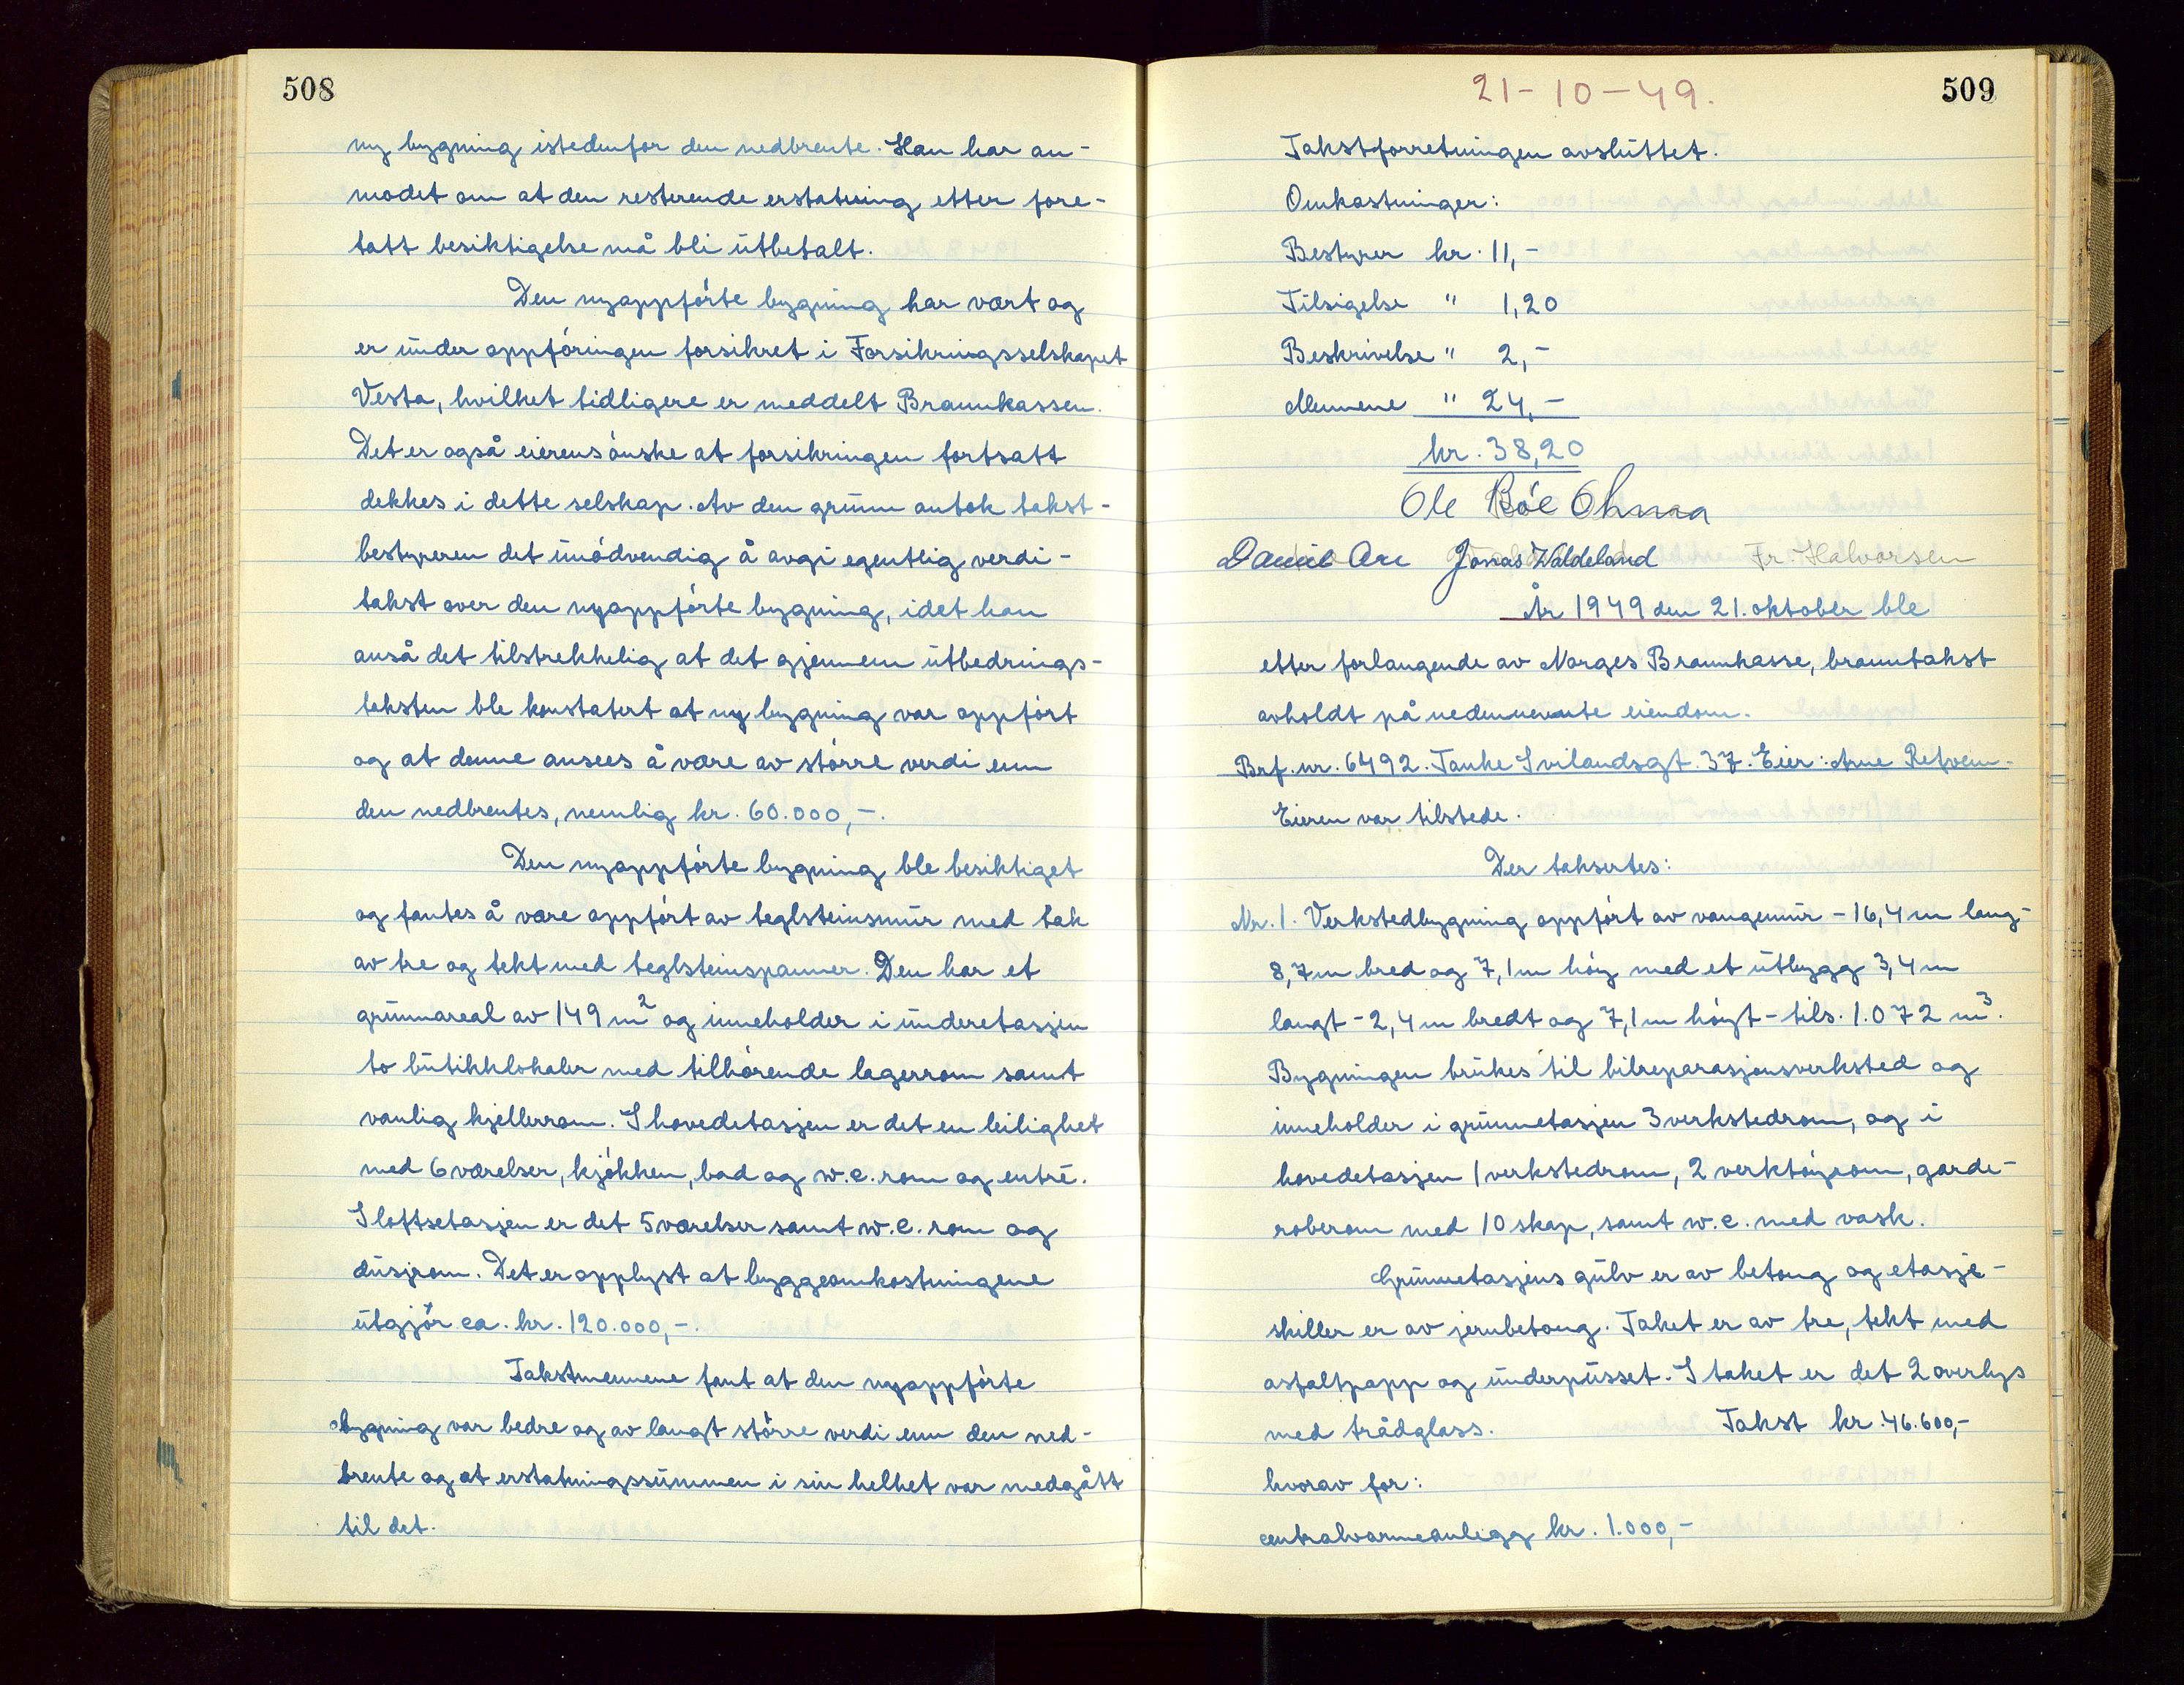 508
ny bygning istedenfor den nedbrente. Han har an-
modet om at den resterende erstatning etter fore-
tatt besiktigelse må bli utbetalt.
Den nyoppførte bygning har vært og
er under oppføringen forsikret i Forsikringsselskapet
Vesta, hvilket tidligere er meddelt Brannkassen.
Det er også eierens ønske at forsikringen fortsatt
dekkes i dette selskap. Av den grunn antok takst-
bestyreren det unødvendig å avgi egentlig verdi-
takst over den nyoppførte bygning, idet han
anså det tilstrekkelig at det gjennem utbedrings-
taksten ble konstatert at ny bygning var oppført
og at denne ansees å være av større verdi enn
den nedbrentes, nemlig kr. 60.000,-.
Den nyoppførte bygning ble besiktiget
og fantes å være oppført av teglsteinsmur med tak
av tre og tekt med teglsteinspanner. Den har et
grunnareal av 149 m² og inneholder i underetasjen
to butikklokaler med tilhørende lagerrom samt
vanlig kjellerrom. I hovedetasjen er det en leilighet
med 6 værelser, kjøkken, bad og w.c. rom og entré.
I loftsetasjen er det 5 værelser samt w.c. rom og
dusjrom. Det er opplyst at byggeomkostningene
utgjør ca. kr. 120.000,-.
Takstmennene fant at den nyoppførte
bygning var bedre og av langt større verdi enn den ned-
brente og at erstatningssummen i sin helhet var medgått
til det.
21-10-49.
509
Takstforretningen avsluttet.
Omkostninger:
Bestyrer kr. 11,-
Tilsigelse " 1,20
Beskrivelse " 2,-
Mennene " 24,-
kr. 38,20
Ole Bøe
Jonas Waldeland Fr. Halvorsen
År 1949 den 21. oktober ble
etter forlangende av Norges Brannkasse, branntakst
avholdt på nedennevnte eiendom.
Brf. nr. 6492. Tanke Svilandsgt. 37. Eier: Arne
Eieren var tilstede.
Der takseres:
Nr. 1. Verkstedbygning oppført av vangemur - 16,4 m lang-
8,7 m bred og 7,1 m høy med et utbygg 3,4 m
langt - 2,4 m bredt og 7,1 m høyt - tils. 1.072 m³.
Bygningen brukes til bilreparasjonsverksted og
inneholder i grunnetasjen 3 verkstedrom, og i
hovedetasjen 1 verkstedrom, 2 verktøyrom, garde-
roberom med 10 skap, samt w.c. med vask.
Grunnetasjens gulv er av betong og etasje-
skiller er av jernbetong. Taket er av tre, tekt med
asfaltpapp og underpusset. I taket er det 2 overlys
med trådglass. Takst kr. 46.600,-
hvorav for:
centralvarmeanlegg kr. 1.000,-